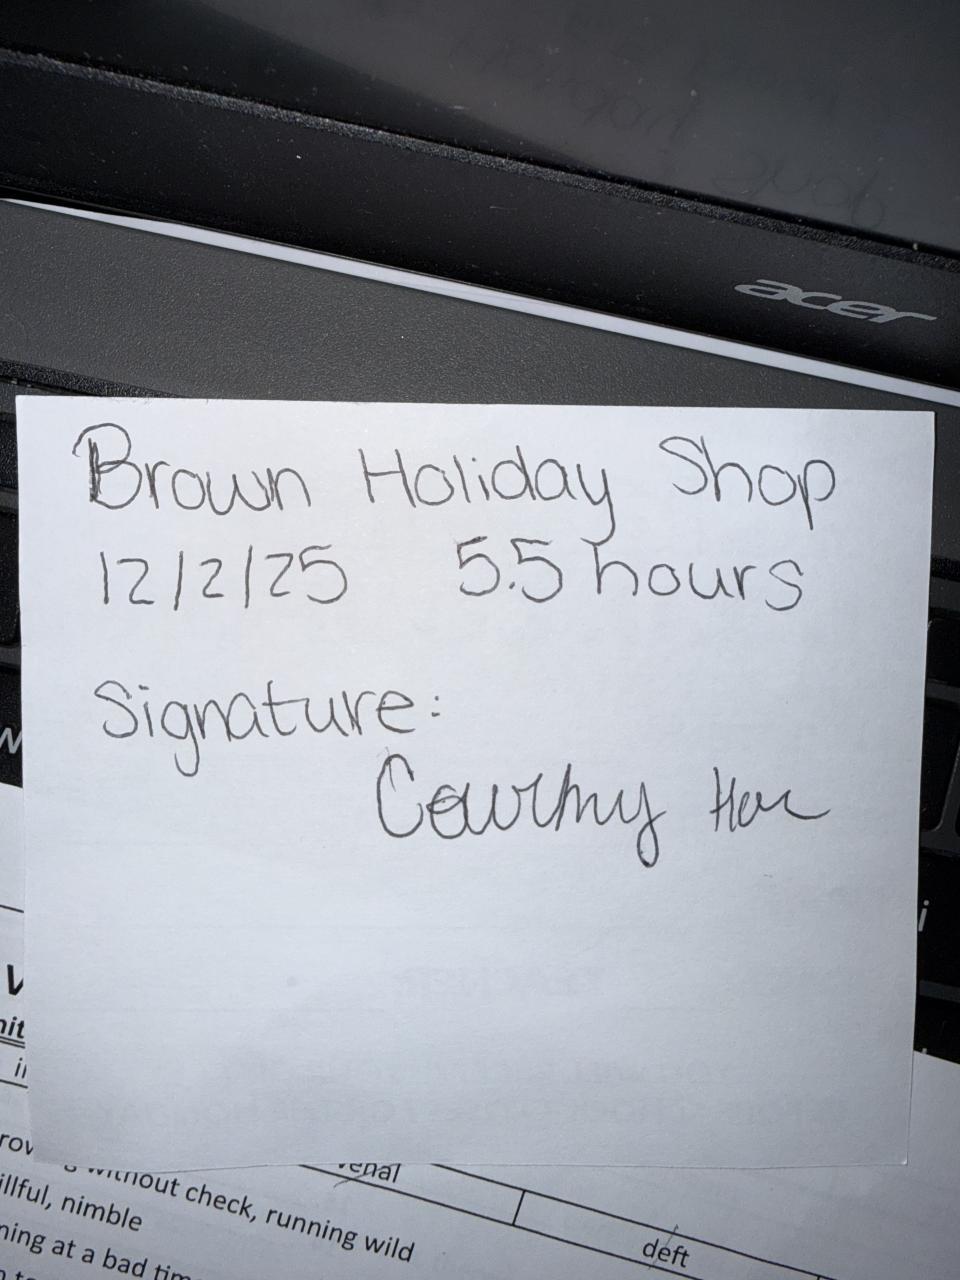 acer
Brown Holiday Shop
12/2/25 5.5 hours
Signature:
Courtney
w
i
venal
without check, running wild
illful, nimble
deft
ning at a bad tim